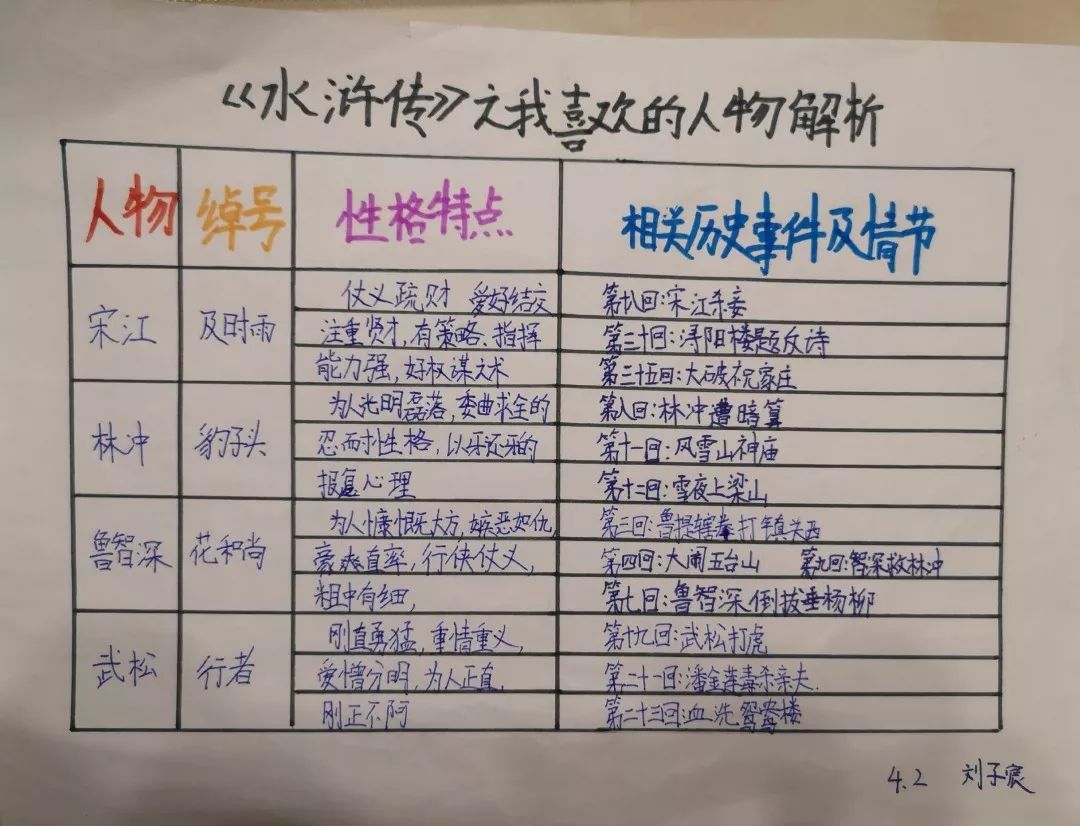 《水浒传》之我喜欢的人物解析
人物 绰号 性格特点 相关历史事件及情节
宋江 及时雨
仗义疏财 爱好结交
注重贤才,有策略、指挥
能力强,好权谋之术
第十八回:宋江杀妾
第三十回:浔阳楼题反诗
第三十五回:大破祝家庄
林冲 豹子头
为人光明磊落,委曲求全的
忍而扌性格,以牙还牙的
报复心理
第八回:林冲遭暗算
第十一回:风雪山神庙
第十二回:雪夜上梁山
鲁智深 花和尚
为人慷慨大方,嫉恶如仇,
豪爽直率,行侠仗义,
粗中有细,
第三回:鲁提辖拳打镇关西
第四回:大闹五台山 第九回:智深救林冲
第七回:鲁智深倒拔垂杨柳
武松 行者
刚直勇猛,重情重义,
爱憎分明,为人正直,
刚正不阿
第十九回:武松打虎
第二十一回:潘金莲毒杀亲夫.
第二十三回:血洗鸳鸯楼
4.2 刘子宸